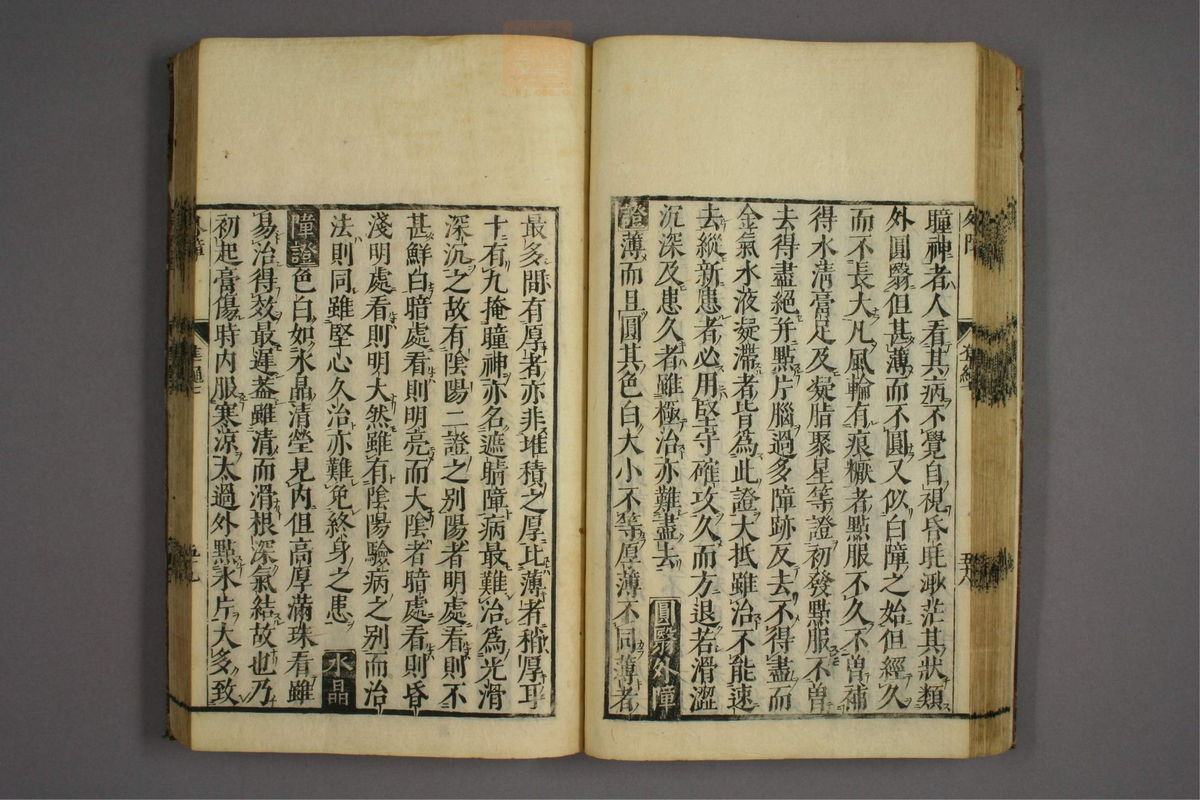 瞳神者人看其病不覺自視昏眊渺茫其狀類
外圓翳但甚薄而不圓又似白障之始但經久
而不長大凡風輪有痕㿜者點服不久不曽補
得水清膏足及凝脂聚星等證初發點服不曽
去得盡絶并點片腦過多障跡反去不得盡而
金氣水液凝滯者皆爲此證大抵雖治不能速
去縱新患者必用堅守確攻久而方退若滑澀
沉深及患久者雖極治亦難盡去 圓翳外障
證薄而且圓其色白大小不等厚薄不同薄者
最多間有厚者亦非堆積之厚比薄者稍厚耳
十有九掩瞳神亦名遮睛障病最難治爲光滑
深沉之故有陰陽二證之别陽者明處看則不
甚鮮白暗處看則明亮而大陰者暗處看則昏
淺明處看則明大然雖有陰陽驗病之别而治
法則同雖堅心久治亦難免終身之患 水晶
障證色白如水晶清瑩見内但高厚滿珠看雖
易治得效最遲蓋雖清而滑根深氣結故也乃
初起膏傷時内服寒涼太過外點氷片太多致